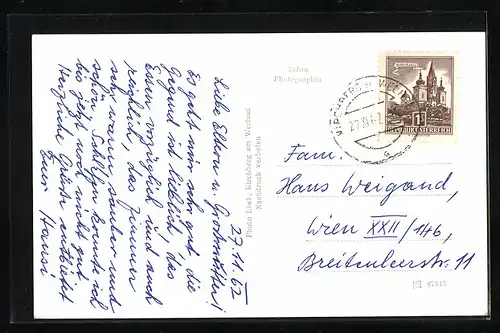 27.11.62
Liebe Eltern u. Großmutter!
Es geht mir sehr gut, die
Gegend ist lieblich, das
Essen vorzüglich und auch
reichlich, das Zimmer
sehr warm, sauber und
schön. Schlafen konnte ich
bis jetzt noch nicht gut
Herzliche Grüße entbietet
Euer Hansi
Echte
Photographie
Photo List, Kirchberg am Wechsel
Nachdruck verboten
KIRCHBERG A. WECHSEL
27.XI.62
MARIAZELL
1S
REPUBLIK ÖSTERREICH
Fam.
Hans Weigand,
Wien XXII/146,
Breitenleerstr. 11